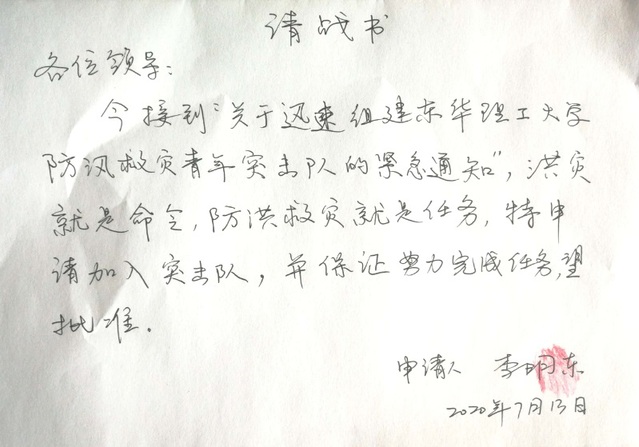 请战书
各位领导:
今接到“关于迅速组建东华理工大学
防汛救灾青年突击队的紧急通知”,洪灾
就是命令,防洪救灾就是任务,特申
请加入突击队,并保证努力完成任务,望
批准.
申请人 李 东
2020年7月13日